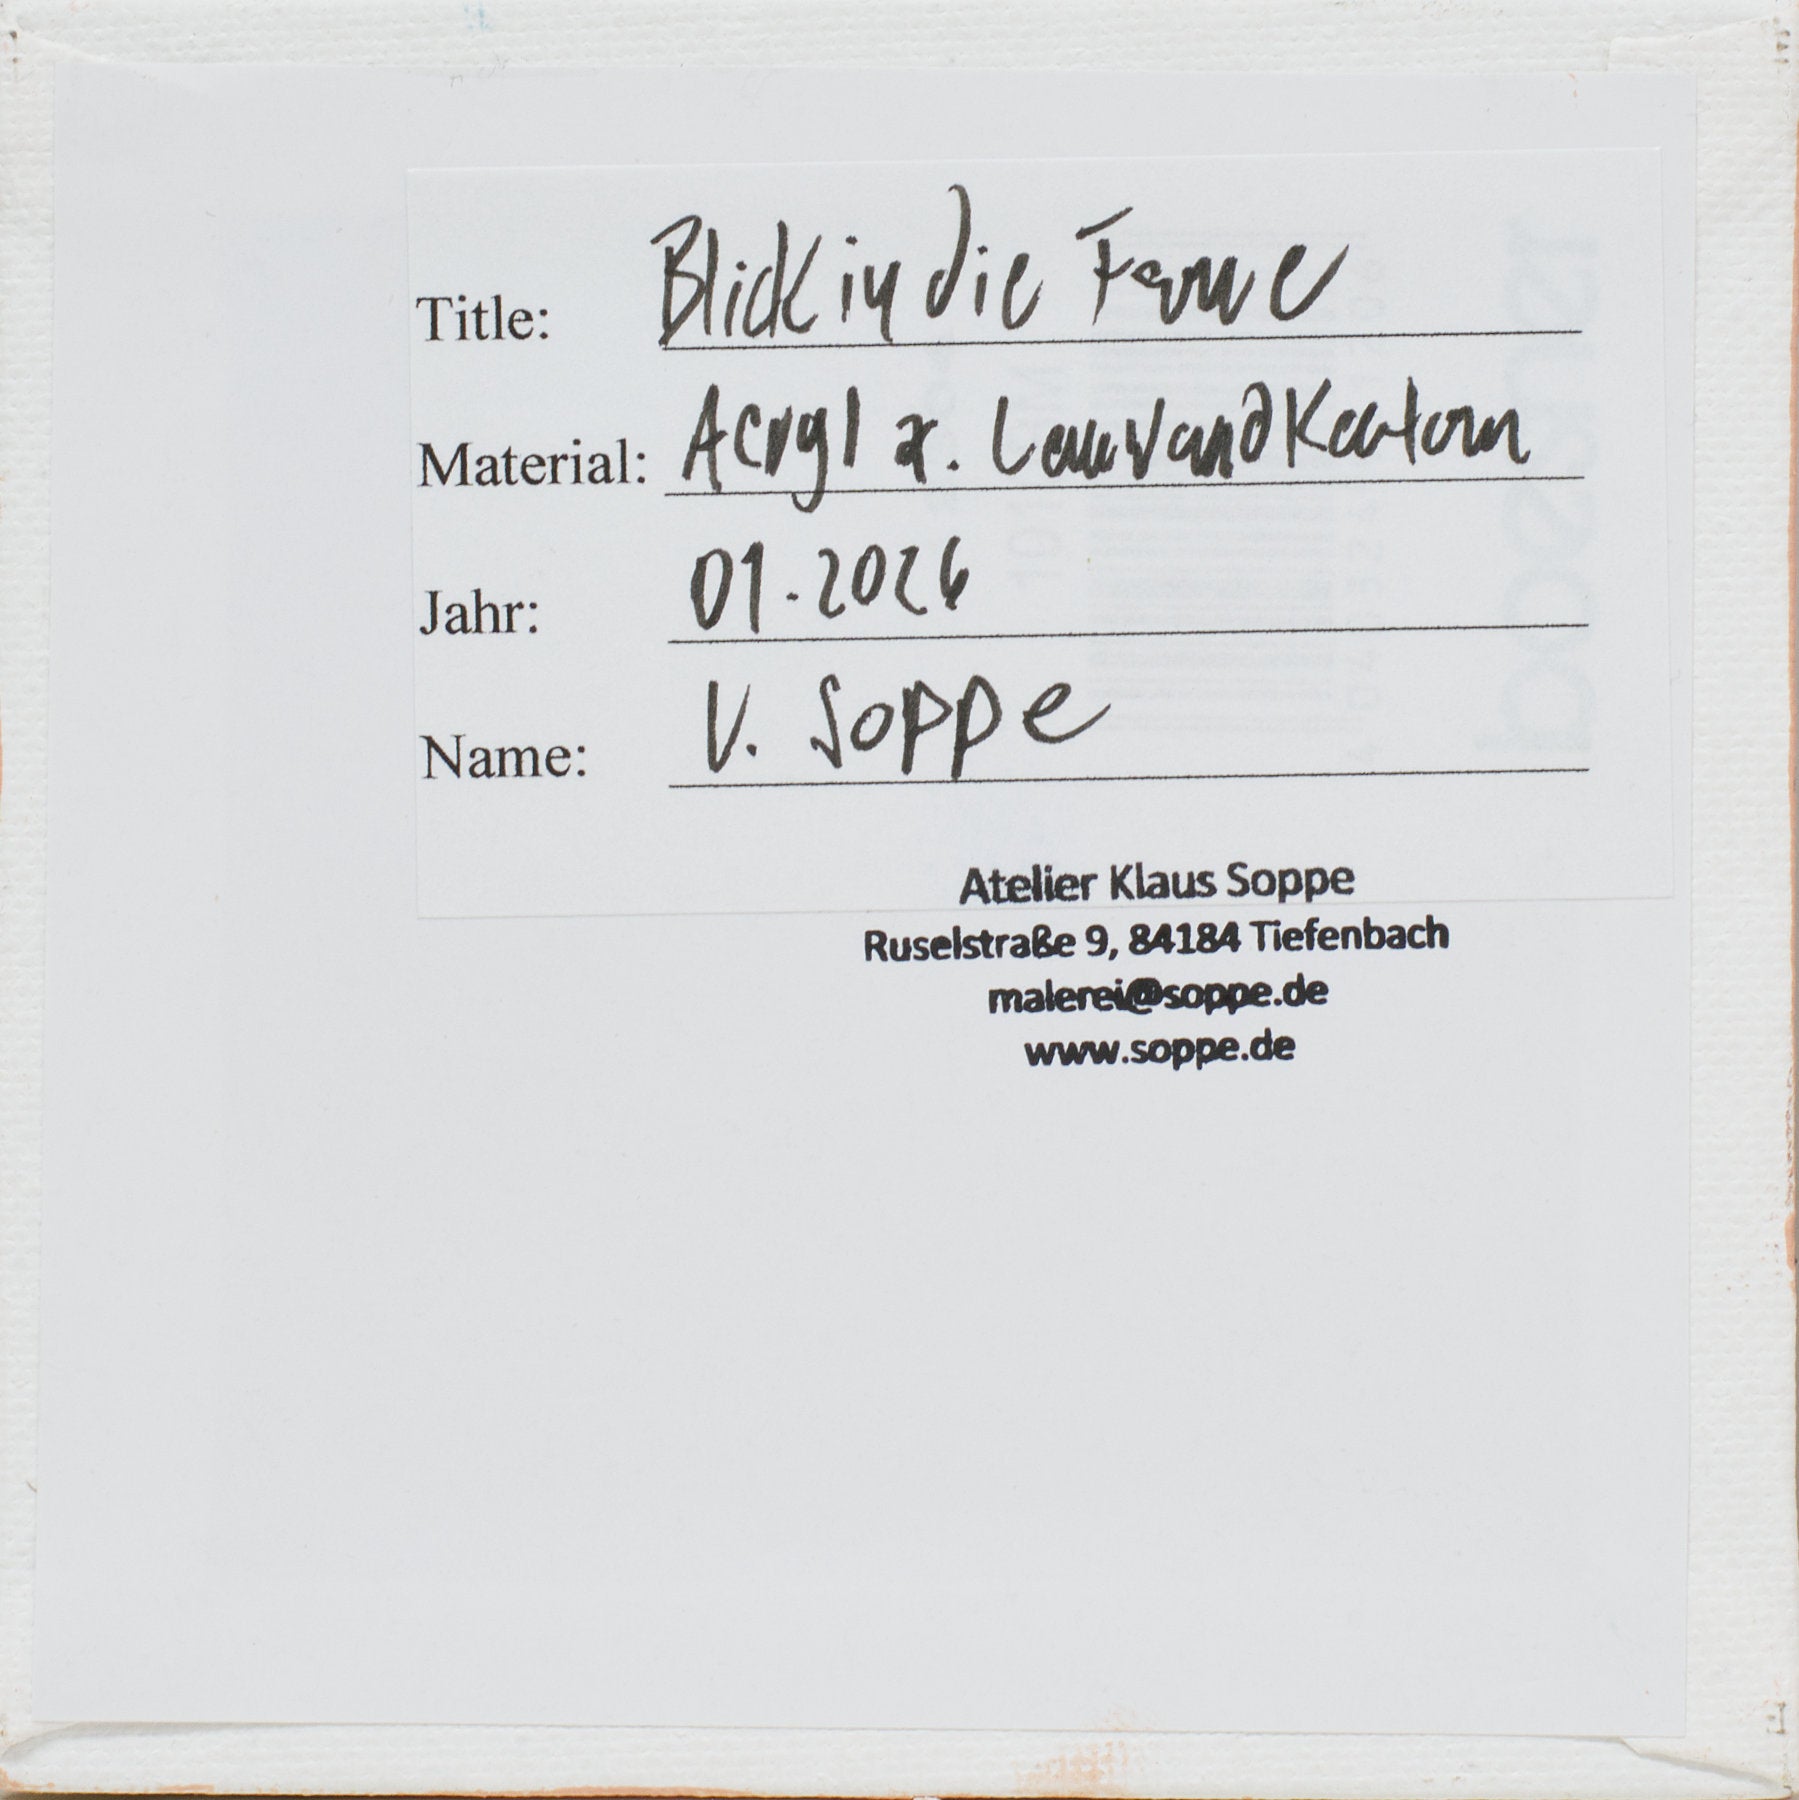 Title: Blick in die Ferne
Material: Acryl a. Leinwand Karton
Jahr: 01.2026
Name: V. Soppe
Atelier Klaus Soppe
Ruselstraße 9, 84184 Tiefenbach
malerei@soppe.de
www.soppe.de